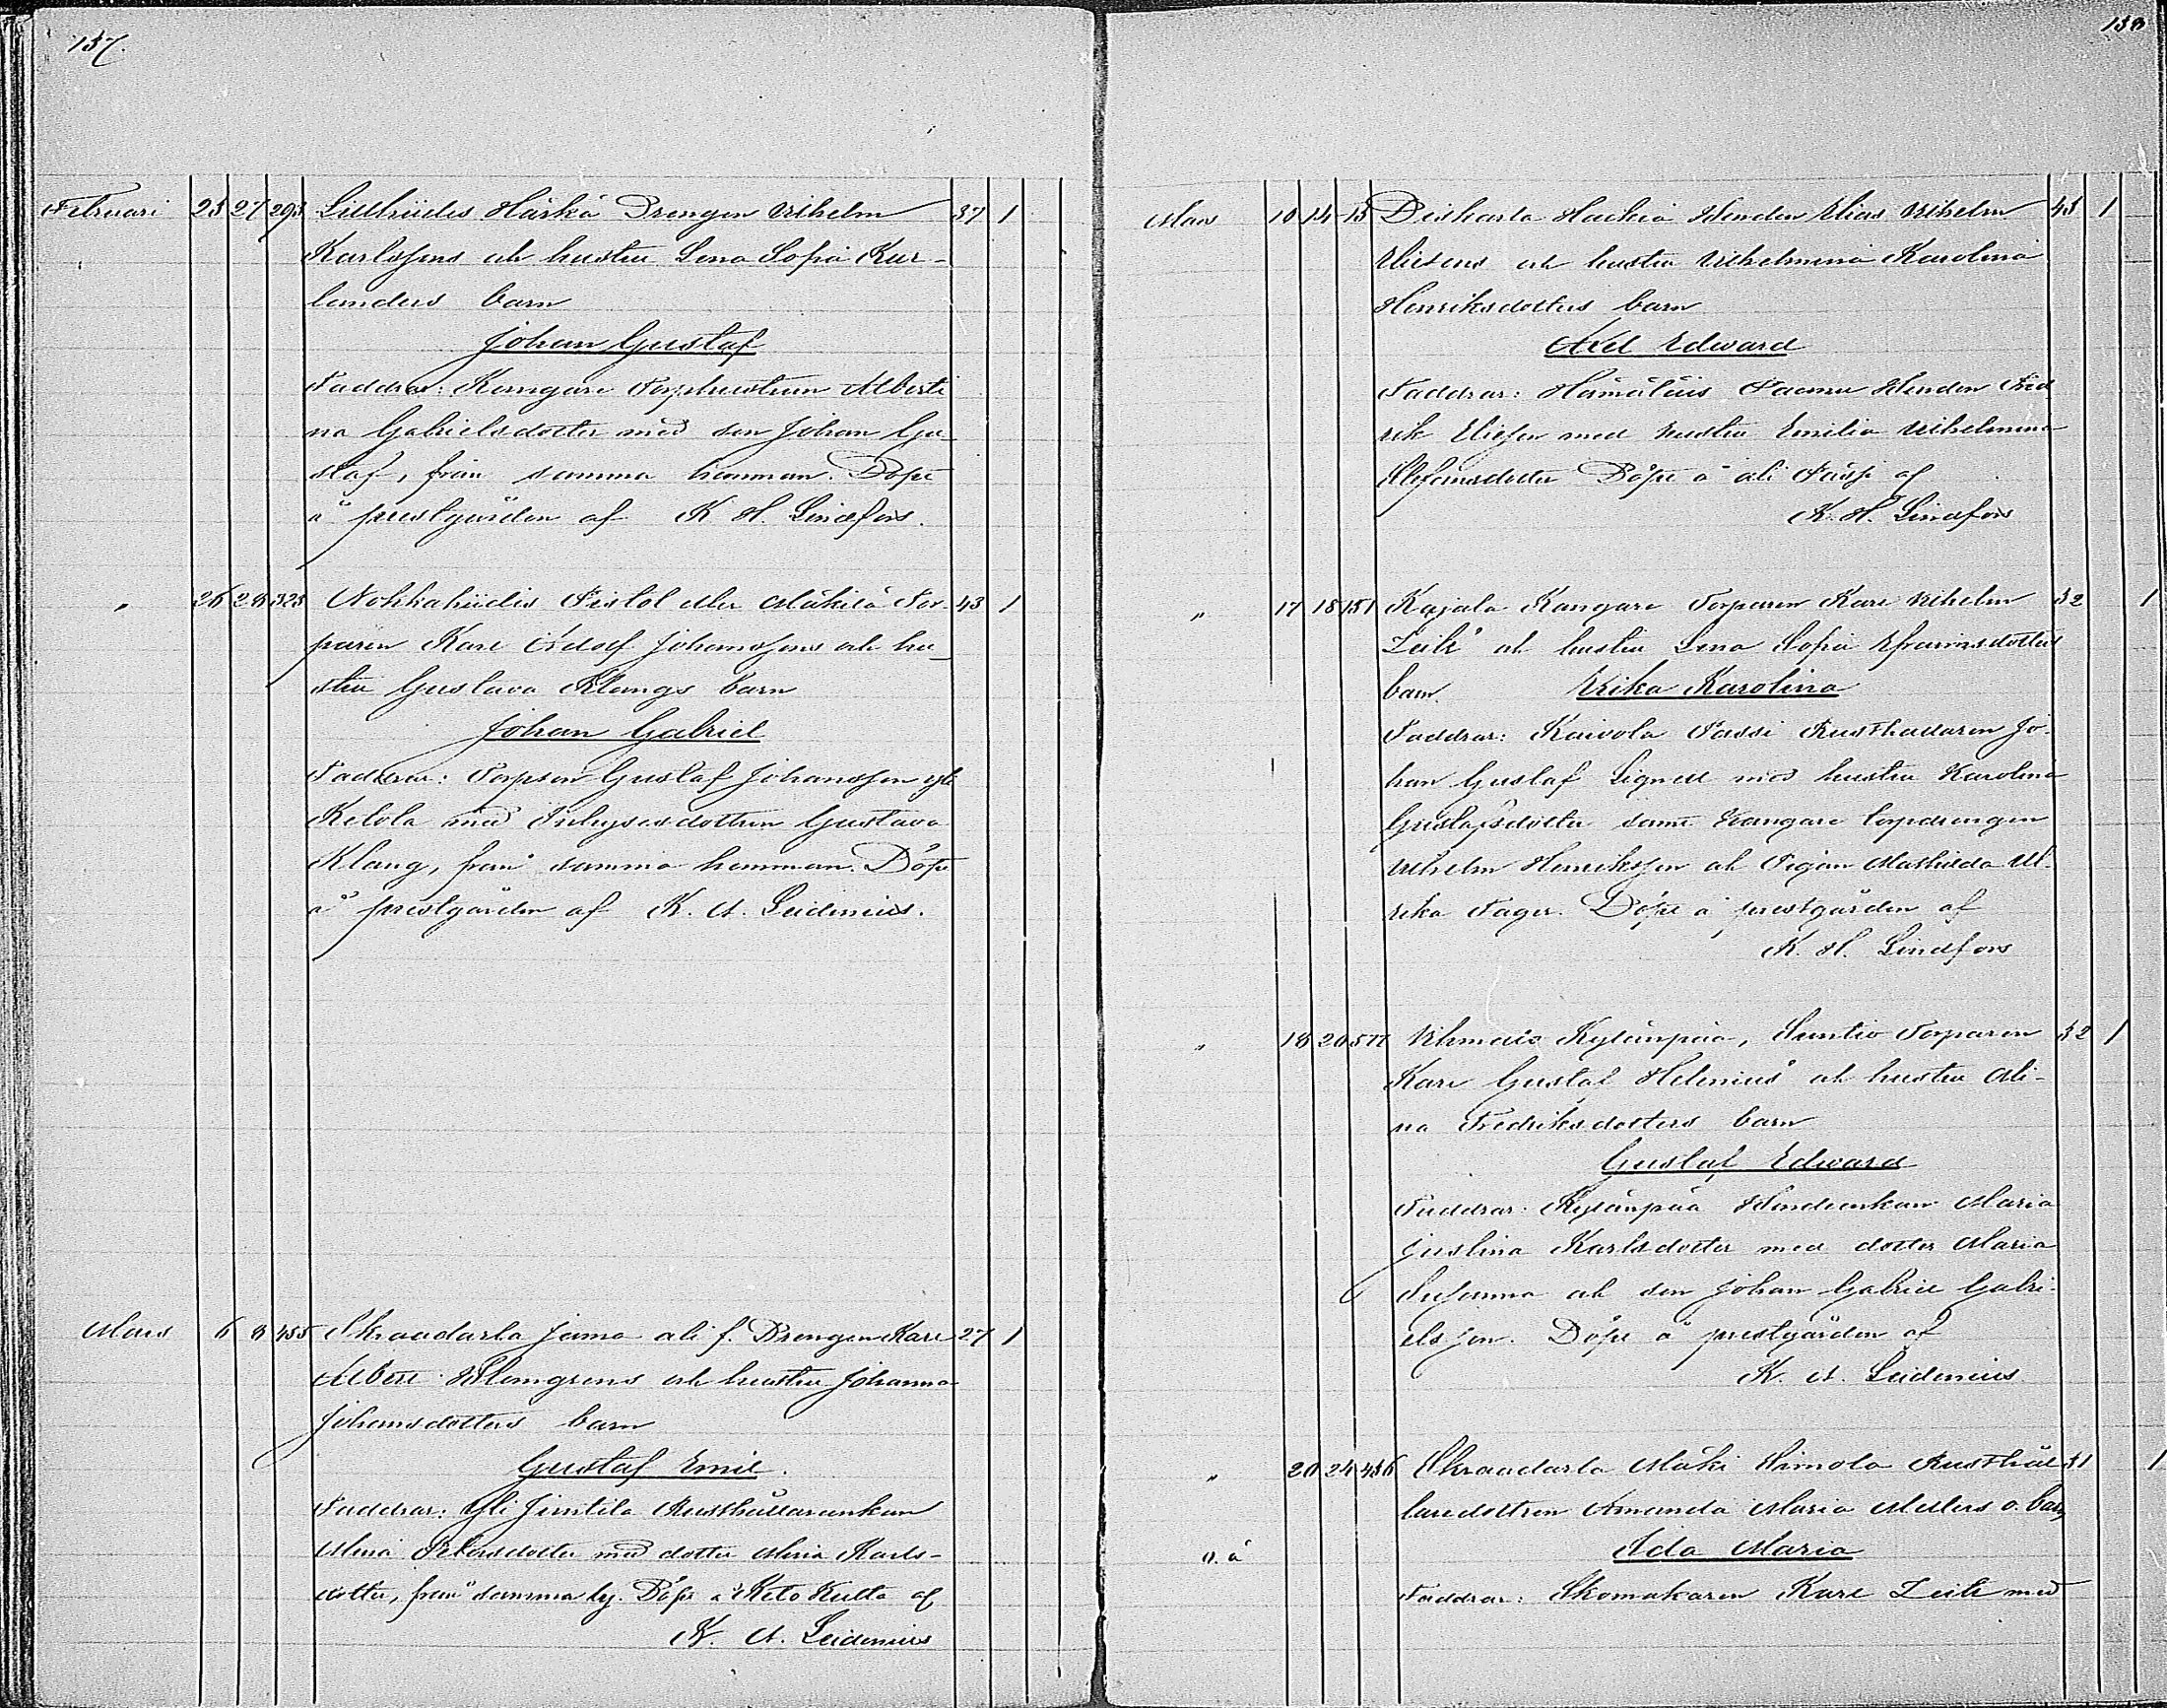 157.
Februari 25 27 293 Lillhiidis Härkä Drengen Wilhelm 37 1
Karlssons och hustru Lena Sofia Kar-
landers barn
Johan Gustaf
Faddrar: Kangare Torphustrun Alberti
na Gabrielsdotter med son Johan Gu
staf, från samma hemman. Döpt
å prestgården af K. H. Lindfors.
" 26 28 323 Nokkahiidis Pistol eller Mäkilä Tor- 43 1
paren Karl Adolf Johanssons och hu-
stru Gustava Klangs barn
Johan Gabriel
Faddrar: Torpson Gustaf Johansson
Ketola med Inhysesdottren Gustava
Klang, från samma hemman. Döpt
å prestgården af K. A. Leidenius.
Mars 6 8 455 Skraadarla Jama ali f. Drengen Karl 27 1
Albert Holmgrens och hustru Johanna
Johansdotters barn
Gustaf Emil.
Faddrar: Yli Jintila Rusthållarenkan
Maria dotter med dotter Maria Karls-
dotter, från samma by. Döpt å Keto Kulta af
K. A. Leidenius
158
Mars 10 14 15 Heikkiä Bonden Elias Wilhelm 43 1
Eliesens och hustru Wilhelmina Karolina
Henriksdotters barn
Axel Edward
Faddrar: Bonden Fred
rik med hustru Emilia Wilhelmina
Döpt å ali af
K. H. Lindfors
" 17 18 151 Kajala Kangare Torparen Karl Wilhelm 32 1
Zeitz och hustru Lena Sofia Efraimsdotters
barn. Erika Karolina
Faddrar: Kaivola Passi Rusthållaren Jo-
han Gustaf Lignell med hustru Karolina
Gustafsdotter samt Kangare torpdrengen
Wilhelm Henriksson och Pigan Mathilda Ul-
rika Fager. Döpt å prestgården af
K. H. Lindfors
" 18 20 577 Kylänpää, Suntio Torparen 32 1
Karl Gustaf Helenius och hustru Ali-
na Fredriksdotters barn
Gustaf Edward
Faddrar: Kylänpää Bondeenkan Maria
Justina Karlsdotter med dotter Maria
Susanna och son Johan Gabriel Gabri-
elsson. Döpt å prestgården af
K. A. Leidenius
" 20 24 456 Skraadarla Mäki Simola Rusthål 31 1
laredottren Amanda Maria o. barn
o. ä Ida Maria
Faddrar: Skomakaren Karl Zeitz med